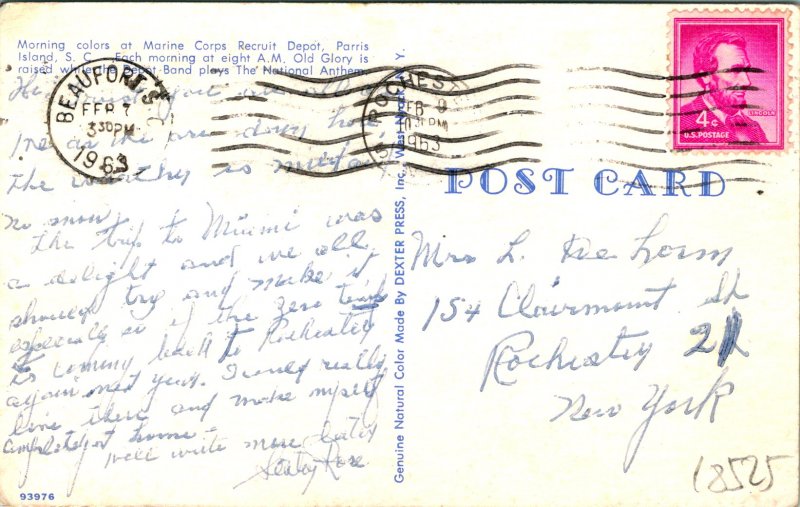 Morning colors at Marine Corps Recruit Depot, Parris
Island, S. C. Each morning at eight A.M. Old Glory is
raised while the Depot Band plays The National Anthem.
BEAUFORT, S.
FEB 7
3 30 PM
1963
ROCHESTER
FEB 9
PM
1963
N. Y.
4¢
LINCOLN
U.S. POSTAGE
POST CARD
you are all
the
the so
no snow.
the trip to Miami was
a delight and we all
should try and make it
especially so if the zero
is coming back to Rochester
again next year. I could really
live there and make myself
completely at home
will write more later
Sister Rose
Genuine Natural Color Made By DEXTER PRESS, Inc., West Nyack, N. Y.
Mrs L. De Horn
154 Clairmount St
Rochester 21
New York
18525
93976